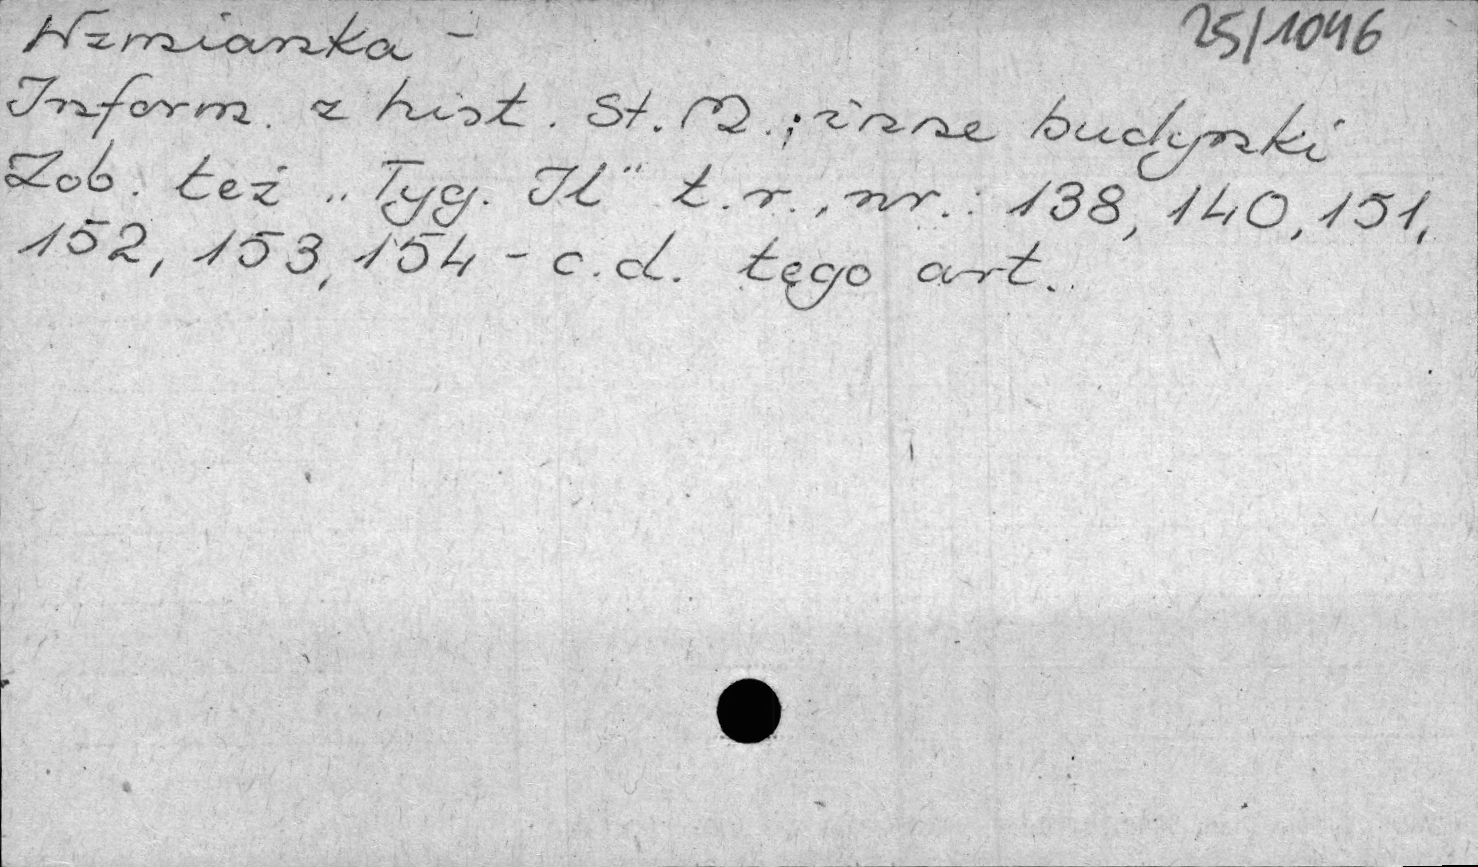 Wzmianka - 25/1046
Inform. z hist. St. M.; inne budynki
Zob. też „Tyg. Il" t. r., nr.: 138, 140, 151,
152, 153, 154 - c. d. tego art.